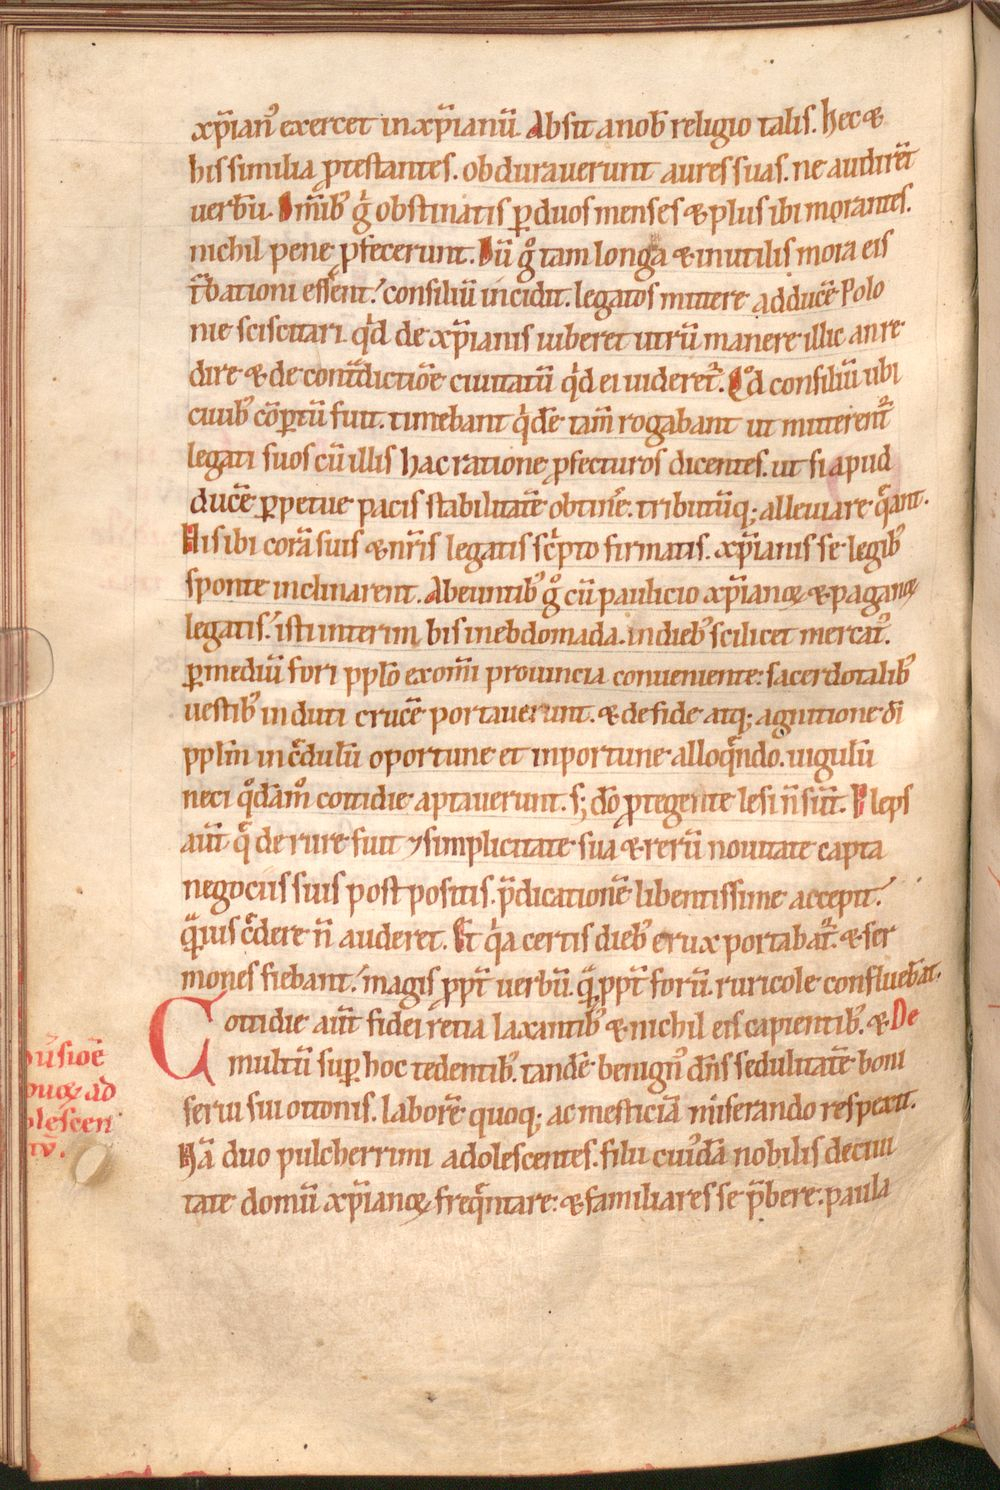 xp̄ian᷒ exercet in xp̄ianū. Absit a nob̄ religio talis. hec &
his similia p̱testantes. obduraverunt aures suas. ne audirēt
verbū. Om̄ib᷒ gͥ obstinatis ꝑ duos menses & plus ibi morantes.
nichil penę ꝓfecerunt. Dū gͦ tam longa & inutilis mora eis
t̄bationi eēnt. consiliū incidit. legatos mittere ad ducē Polo
nie sciscitari. qͥd de xp̄ianis iuberet utrū manere illic an re
dire & de cont̄dictiōe civitatū qͥd ei videret᷑. Qͦd consiliū ubi
civib᷒ cōꝑtū fuit. timebant qͥdē tam̄ rogabant ut mitterent᷑
legati suos cū illis hac ratione ꝓfecturos dicentes. ut si apud
ducē ꝑpetue pacis stabilitatē obtinēt. tributūq; alleviare qͣant.
Hi sibi corā suis & nr̄is legatis scͥpto firmatis. xp̄ianis se legib᷒
sponte inclinarent. Abeuntib᷒ gͦ cū paulicio xp̄ianoꝝ & paganoꝝ
legatis. isti interim bis in ebdomada. in dieb᷒ scilicet mercat᷒.
ꝑ mediū fori pplo̅ ex om̄i provincia conveniente: sacerdotalib᷒
vestib᷒ induti crucē portaverunt. & de fide atq; agnitione dī
pplm̄ incͤdulū oportune et inportune alloqͤndo. vigulū
neci qͦdāmͦ cottidie aptaverunt. s; dō ꝓtegente lesi n̄ sūt. Pleps
aūt qͤ de rure fuit ⁊ simplicitate sua & rerū novitate capta
negociis suis postpositis. p̄dicationē libentissime accepit.
qͣvis cͤdere n̄ auderet. Et qͥa certis dieb᷒ crux portabat᷑. & ser
mones fiebant. magis ꝓpt̄ verbū. qͣ ꝓpt̄ forū. ruricole confluebāt.
Cottidie aūt fidei retia laxantib᷒ & nichil eis capientib᷒. & De
multū suꝑ hoc tedentib᷒. tandē benign᷒ dn̄s sedulitatē boni
servi sui ottonis. laborē quoq; ac mesticiā miserando respexit.
Nā duo pulcherrimi adolescentes. filii cuiͥdā nobilis de civi
tate domū xp̄ianoꝝ freqͤntare. & familiares se p̄bere. paula
v̄sioē
puoꝝ ad
olescen
tū.